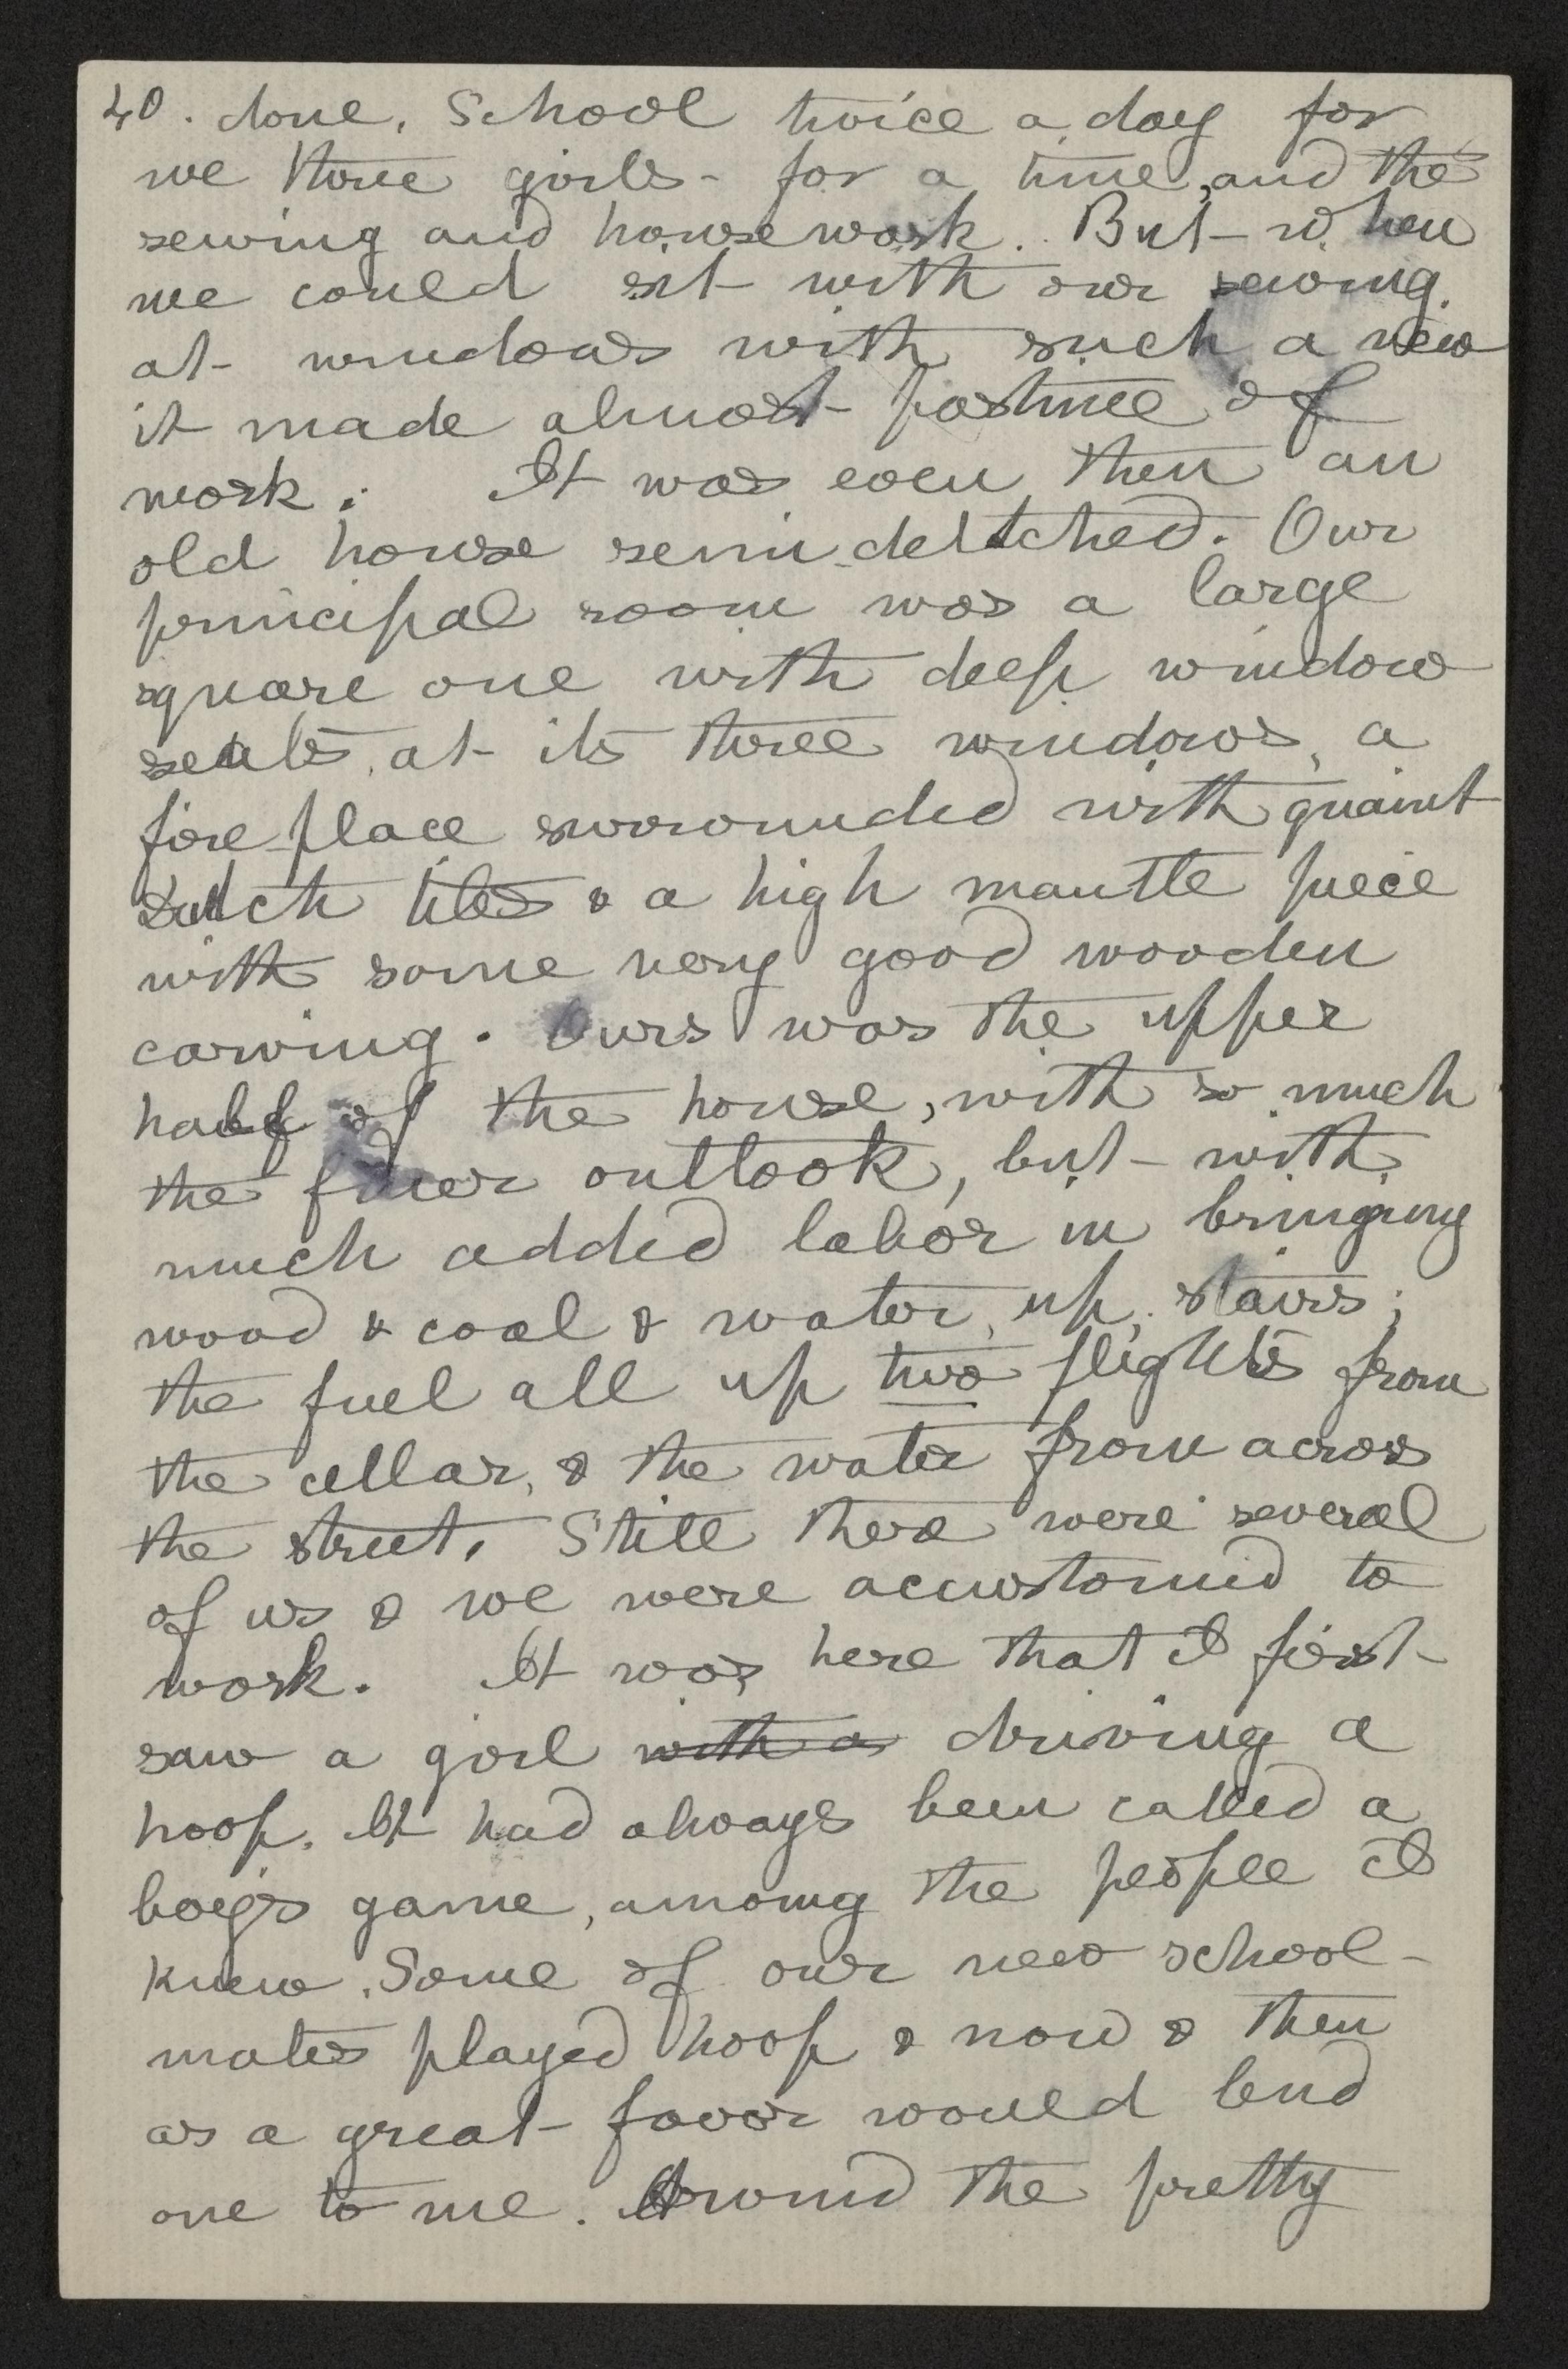 40. done. School twice a day for
we three girls - for a time, and the
sewing and housework. But - when
we could sit with our sewing
at - windows with such a view
it made almost pastime of
work. It was even then an
old house semi-detatched. Our
principal room was a large
square one with deep window
seats, at its three windows, a
fire-place surrounded with quaint
Dutch tiles & a high mantle piece
with some very good wooden
carving. Ours was the upper
half of the house, with so much
the finer outlook, but - with
much added labor in bringing
wood & coal & water, up stairs;
the fuel all up two flights from
the cellar, & the water from across
the street. Still there were several
of us & we were accustomed to
work. It was here that I first
saw a girl with a driving a
hoop. It had always been called a
boy's game, among the people I
knew. Some of our new school-
mates played hoop & now & then
as a great favor would lend
one to me. Around the pretty